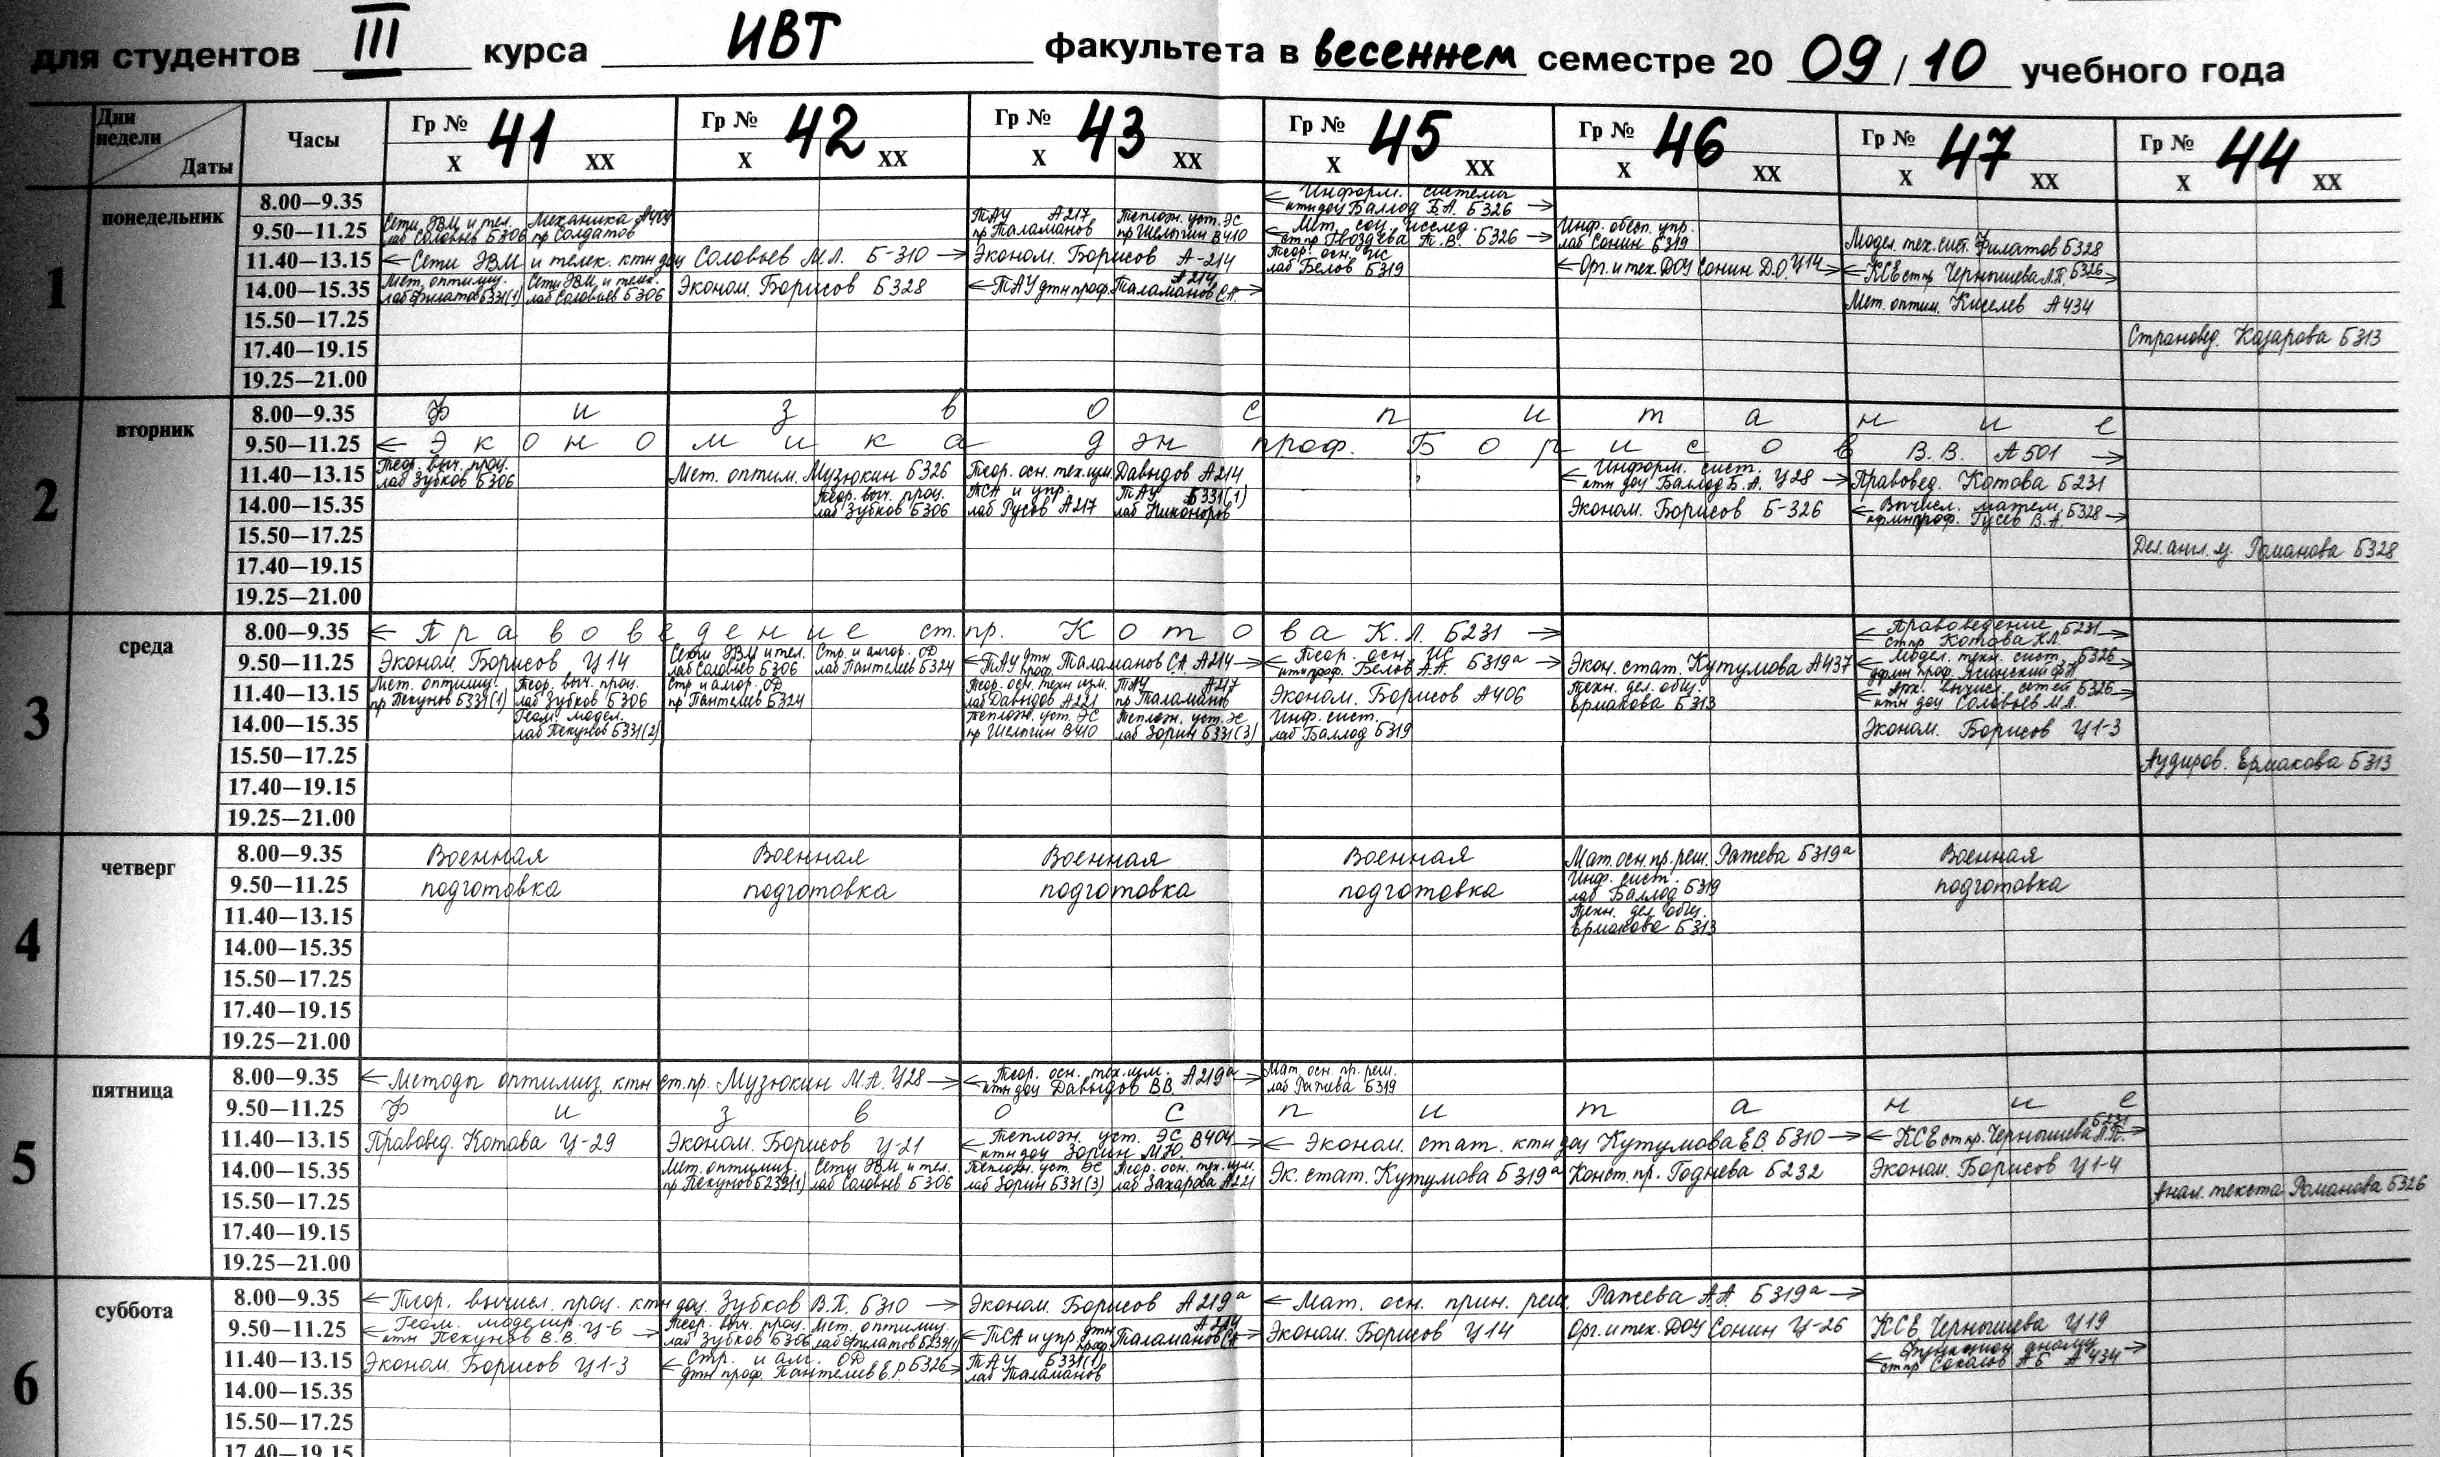 для студентов III курса ИВТ факультета в весеннем семестре 20 09/10 учебного года
Дни недели Даты Часы Гр № 41 Гр № 42 Гр № 43 Гр № 45 Гр № 46 Гр № 47 Гр № 44
X XX X XX X XX X XX X XX X XX X XX
1 понедельник
8.00—9.35 Информ. системы ктн доц Баллод Б.А. Б326
9.50—11.25 Сети ЭВМ и тел. лаб Соловьев Б306 Механика А409 пр Солдатов ТАУ А217 пр Таламанов Теплоэн. уст. ЭС пр Шелыгин В410 Мет. соц. исслед. ст пр Гвоздева Т.В. Б326 Инф. обесп. упр. лаб Сонин Б319
11.40—13.15 Сети ЭВМ и телек. ктн доц Соловьев М.Л. Б-310 Эконом. Борисов А-214 Теор. осн. ИС лаб Белов Б319 Модел. тех. сист. Филатов Б328
14.00—15.35 Мет. оптимиз. лаб Филатов Б331(1) Сети ЭВМ и телек. лаб Соловьев Б306 Эконом. Борисов Б328 ТАУ дтн проф. Таламанов С.А. А214 Орг. и тех. ДОУ Сонин Д.О. Ц14 КСЕ ст пр Чернышева Л.П. Б326
15.50—17.25 Мет. оптим. Киселев А434
17.40—19.15 Страновед. Казарова Б313
19.25—21.00
2 вторник
8.00—9.35 Физвоспитание
9.50—11.25 Экономика дэн проф. Борисов В.В. А501
11.40—13.15 Теор. выч. проц. лаб Зубков Б306 Мет. оптим. Музюкин Б326 Теор. осн. тех. изм. Давыдов А214 Информ. сист. ктн доц Баллод Б.А. Ц28 Правовед. Котова Б231
14.00—15.35 Теор. выч. проц. лаб Зубков Б306 ТСА и упр. лаб Русов А217 ТАУ Б331(1) лаб Никоноров Эконом. Борисов Б-326 Вычисл. матем. Б328 проф. Гусев В.А.
15.50—17.25
17.40—19.15 Дел. англ. яз. Романова Б328
19.25—21.00
3 среда
8.00—9.35 Правоведение ст. пр. Котова К.Л. Б231 Правоведение Б231 ст пр Котова К.Л.
9.50—11.25 Эконом. Борисов Ц14 Сети ЭВМ и тел. лаб Соловьев Б306 Стр. и алгор. ОД лаб Пантелеев Б324 ТАУ дтн проф. Таламанов С.А. А214 Теор. осн. ИС ктн проф. Белов А.А. Б319а Экон. стат. Кутумова А437 Модел. техн. сист. Б326 проф. Ясинский Ф.Н.
11.40—13.15 Мет. оптимиз. пр Пекунов Б331(1) Теор. выч. проц. лаб Зубков Б306 Стр и алгор. ОД пр Пантелеев Б324 Теор. осн. техн изм. лаб Давыдов А221 ТАУ А217 пр Таламанов Эконом. Борисов А406 Техн. дел. общ. Ермакова Б313 Арх. вычисл. сетей Б326 ктн доц Соловьев М.Л.
14.00—15.35 Геом. модел. лаб Пекунов Б331(2) Теплоэн. уст. ЭС пр Шелыгин В410 Теплоэн. уст. ЭС лаб Зорин Б331(3) Инф. сист. лаб Баллод Б319 Эконом. Борисов Ц1-3
15.50—17.25 Аудиров. Ермакова Б313
17.40—19.15
19.25—21.00
4 четверг
8.00—9.35 Военная Военная Военная Военная Мат. осн. пр. реш. Ратева Б319а Военная
9.50—11.25 подготовка подготовка подготовка подготовка Инф. сист. лаб Баллод Б319 подготовка
11.40—13.15 Техн. дел общ. Ермакова Б313
14.00—15.35
15.50—17.25
17.40—19.15
19.25—21.00
5 пятница
8.00—9.35 Методы оптимиз. ктн ст. пр. Музюкин М.А. Ц28 Теор. осн. тех. изм. ктн доц Давыдов В.В. А219а Мат. осн. пр. реш. лаб Ратева Б319
9.50—11.25 Физвоспитание
11.40—13.15 Правовед. Котова Ц-29 Эконом. Борисов Ц-21 Теплоэн. уст. ЭС В404 ктн доц Зорин М.Ю. Эконом. стат. ктн доц Кутумова Е.В. Б310 КСЕ ст пр. Чернышева Л.П. Б231
14.00—15.35 Мет. оптимиз. пр Пекунов Б239(1) Сети ЭВМ и тел. лаб Соловьев Б306 Теплоэн. уст ЭС лаб Зорин Б331(3) Теор. осн. тех. изм. лаб Захарова А221 Эк. стат. Кутумова Б319а Конст. пр. Годнева Б232 Эконом. Борисов Ц1-4
15.50—17.25 Анал. текста Романова Б326
17.40—19.15
19.25—21.00
6 суббота
8.00—9.35 Теор. вычисл. проц. ктн доц. Зубков В.П. Б310 Эконом. Борисов А219а Мат. осн. прин. реш. Ратева А.А. Б319а
9.50—11.25 Геом. моделир. Ц-6 ктн Пекунов В.В. Теор. выч. проц. лаб Зубков Б306 Мет. оптимиз. лаб Филатов Б239(1) ТСА и упр. дтн проф. Таламанов С.А. А214 Эконом. Борисов Ц14 Орг. и тех. ДОУ Сонин Ц-26 КСЕ Чернышева Ц19
11.40—13.15 Эконом. Борисов Ц1-3 Стр. и алг. ОД дтн проф. Пантелеев Е.Р. Б326 ТАУ Б331(1) лаб Таламанов Функцион анализ ст пр Соколов А.Б. А434
14.00—15.35
15.50—17.25
17.40—19.15